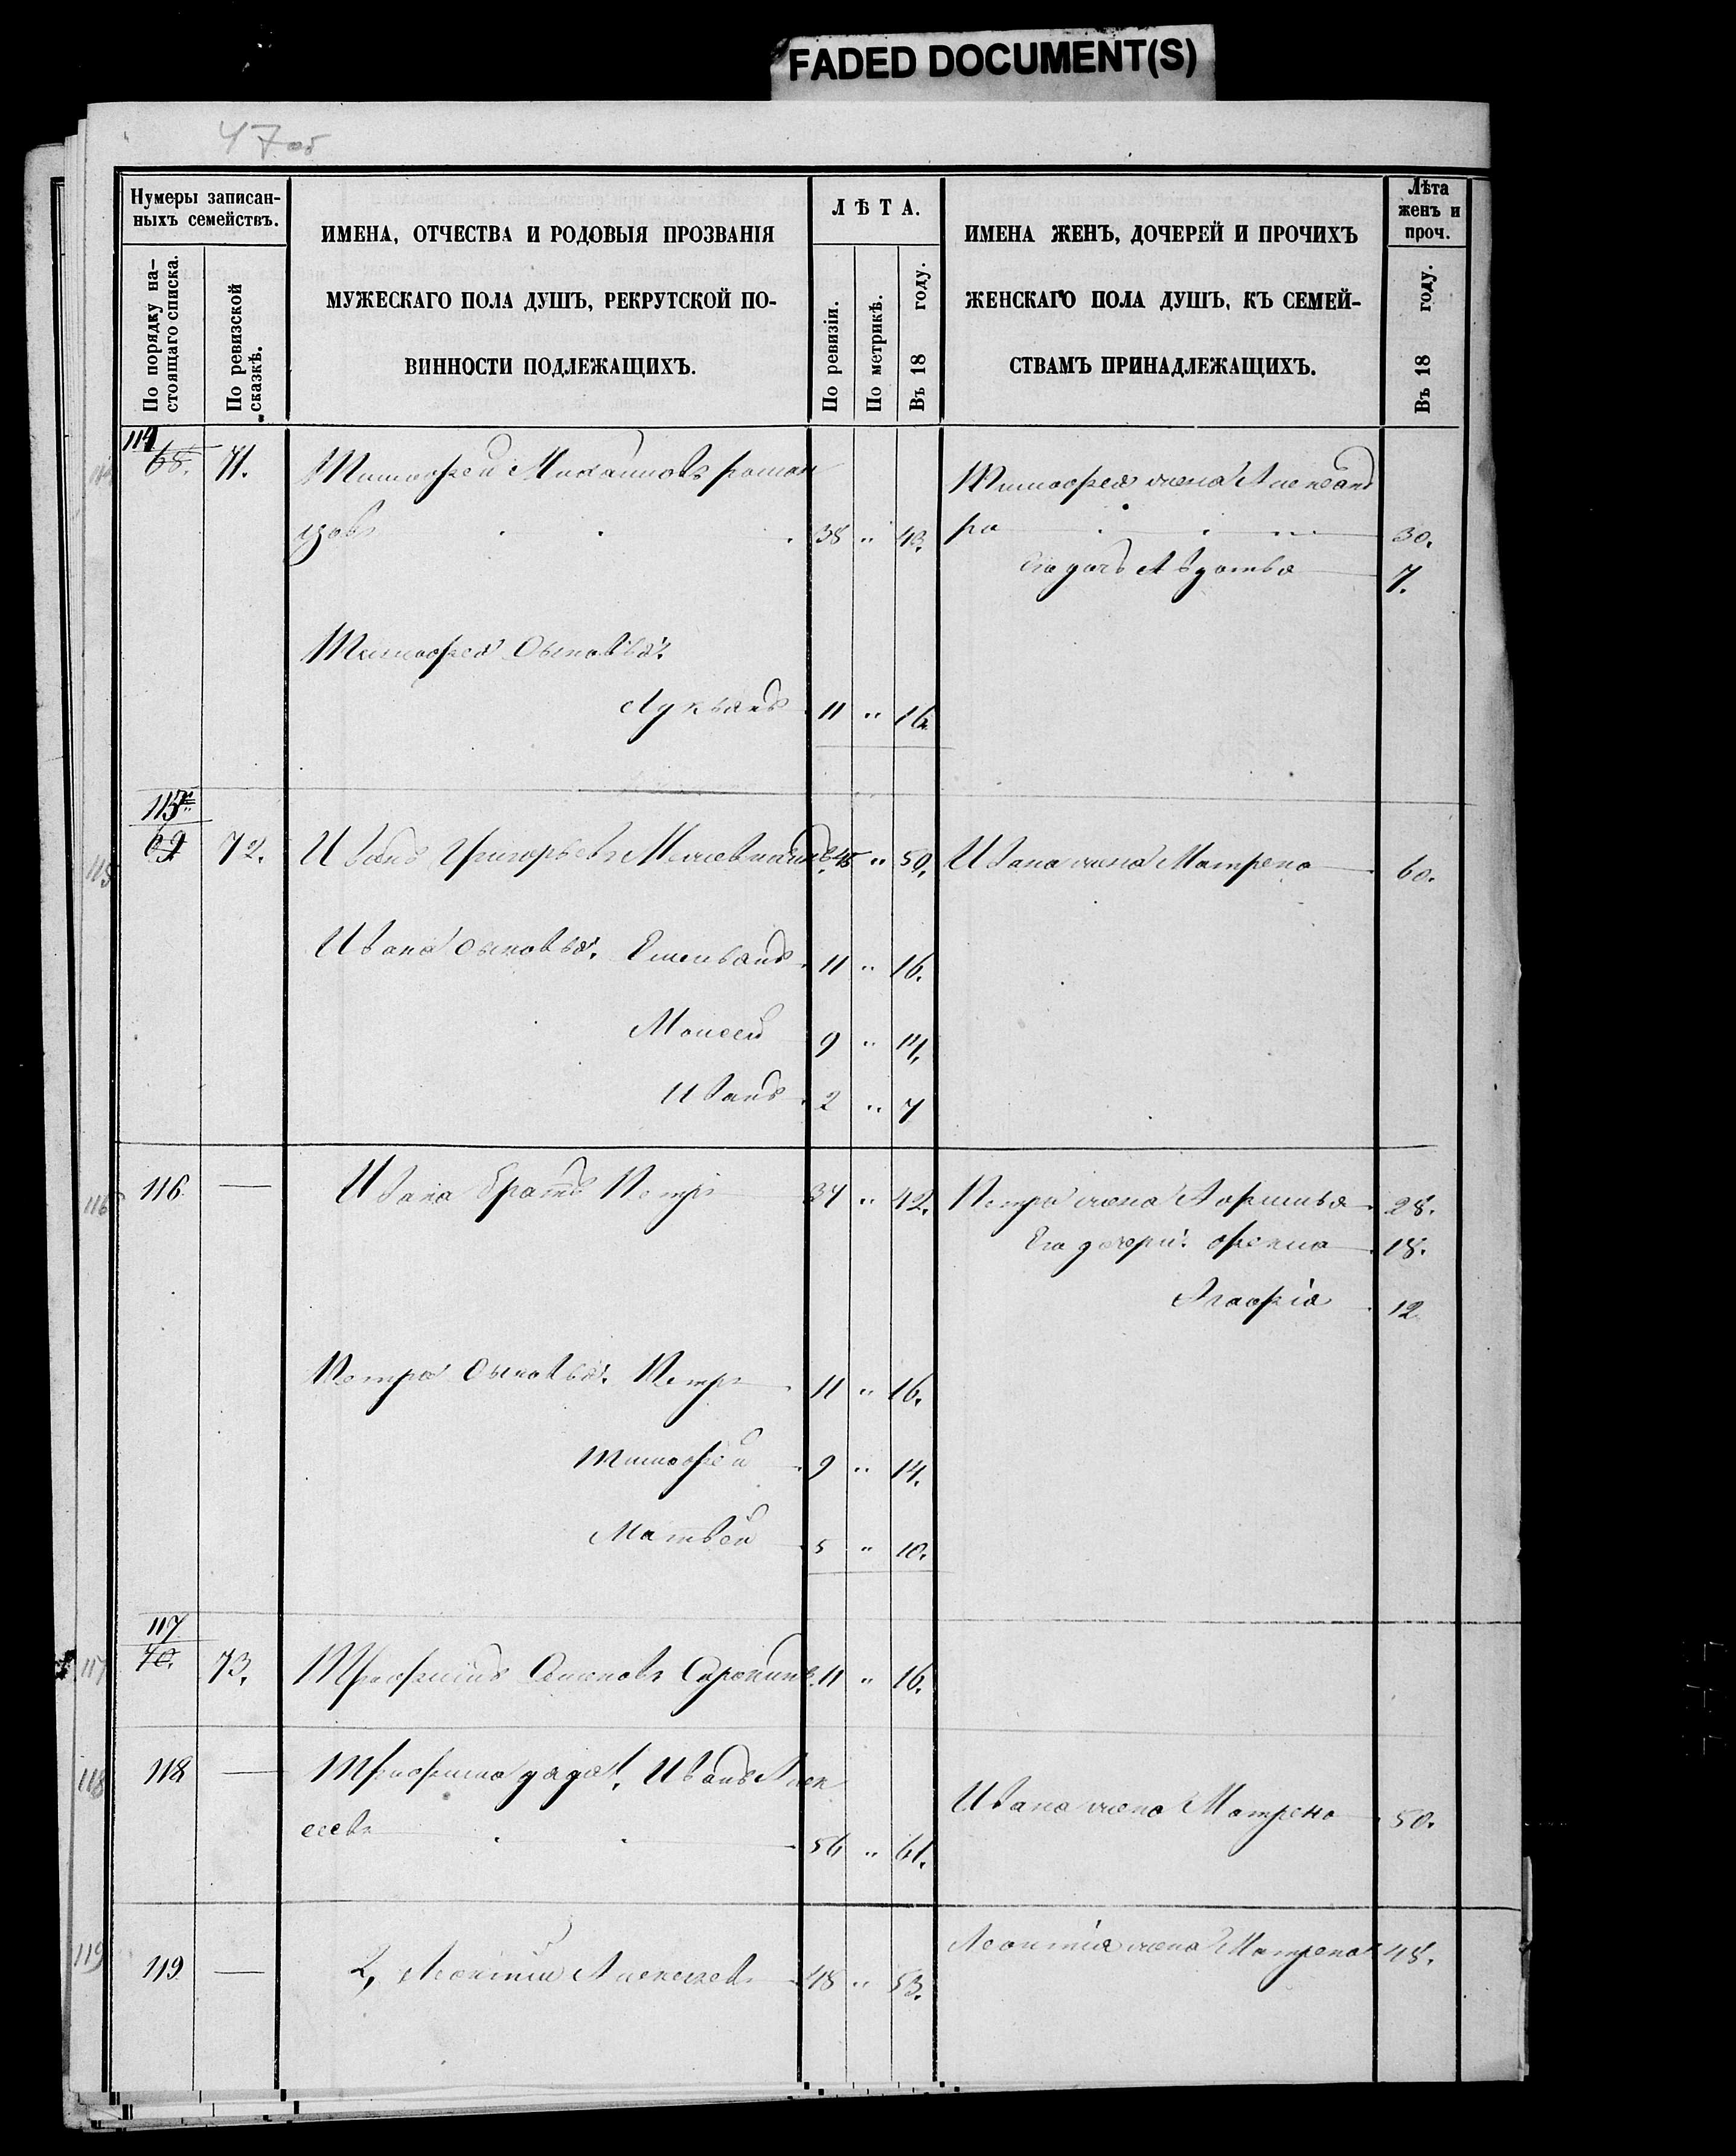 FADED DOCUMENT(S)
47 об
Нумеры записан-
ныхъ семействъ.
По порядку на-
стоящаго списка.
По ревизской
сказкѣ.
ИМЕНА, ОТЧЕСТВА И РОДОВЫЯ ПРОЗВАНІЯ
МУЖЕСКАГО ПОЛА ДУШЪ, РЕКРУТСКОЙ ПО-
ВИННОСТИ ПОДЛЕЖАЩИХЪ.
ЛѢТА.
По ревизіи.
По метрикѣ.
Въ 18 году.
ИМЕНА ЖЕНЪ, ДОЧЕРЕЙ И ПРОЧИХЪ
ЖЕНСКАГО ПОЛА ДУШЪ, КЪ СЕМЕЙ-
СТВАМЪ ПРИНАДЛЕЖАЩИХЪ.
Лѣта
женъ и
проч.
Въ 18 году.
114
114 68. 71. Тимофей Михайловъ роман
цовъ 38 " 43.
Тимофея жена Александ
ра 30.
Его дочь Авдотья 7.
Тимофея Сыновья:
Лукьянъ 11 " 16.
115
115 69 72. Иванъ Григорьевъ 45 " 50. Ивана жена Матрена 60.
Ивана сыновья: Емельянъ 11 " 16.
Моисей 9 " 14.
Иванъ 2 " 7
116 116 — Ивана братъ Петръ 37 " 42. Петра жена 28.
Его дочери: 18.
Агафія 12
Петра Сыновья: Петръ 11 " 16.
Тимофей 9 " 14.
Матвей 5 " 10.
117
117 70. 73. Трофимъ Сорокинъ 11 " 16.
118 118 — Трофима дядя 1, Иванъ Алек
сеевъ 56 " 61.
Ивана жена Матрена 50.
119 119 — 2, Леонтій Алексеевъ 48 " 53.
Леонтія жена Матрена 48.